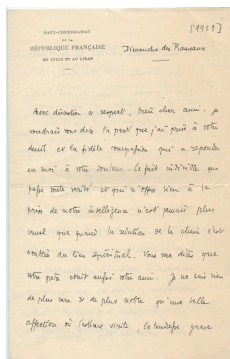 [1931]
HAUT-COMMISSARIAT
DE LA
RÉPUBLIQUE FRANÇAISE
EN SYRIE ET AU LIBAN
Dimanche des Rameaux
Avec discrétion et respect, bien cher ami, je
voudrais vous dire la part que j'ai prise à votre
deuil et la fidèle compassion qui a répondu
en moi à votre douleur. Le fait indicible qui
passe toute vérité et qui n'offre rien à la
prise de notre intelligence n'est jamais plus
cruel que quand la relation de la chair s'est
doublée du lien spirituel. Vous me dites que
votre père était aussi votre ami. Je ne sais rien
de plus rare ni de plus noble qu'une telle
affection où l'estime virile, la tendresse grave